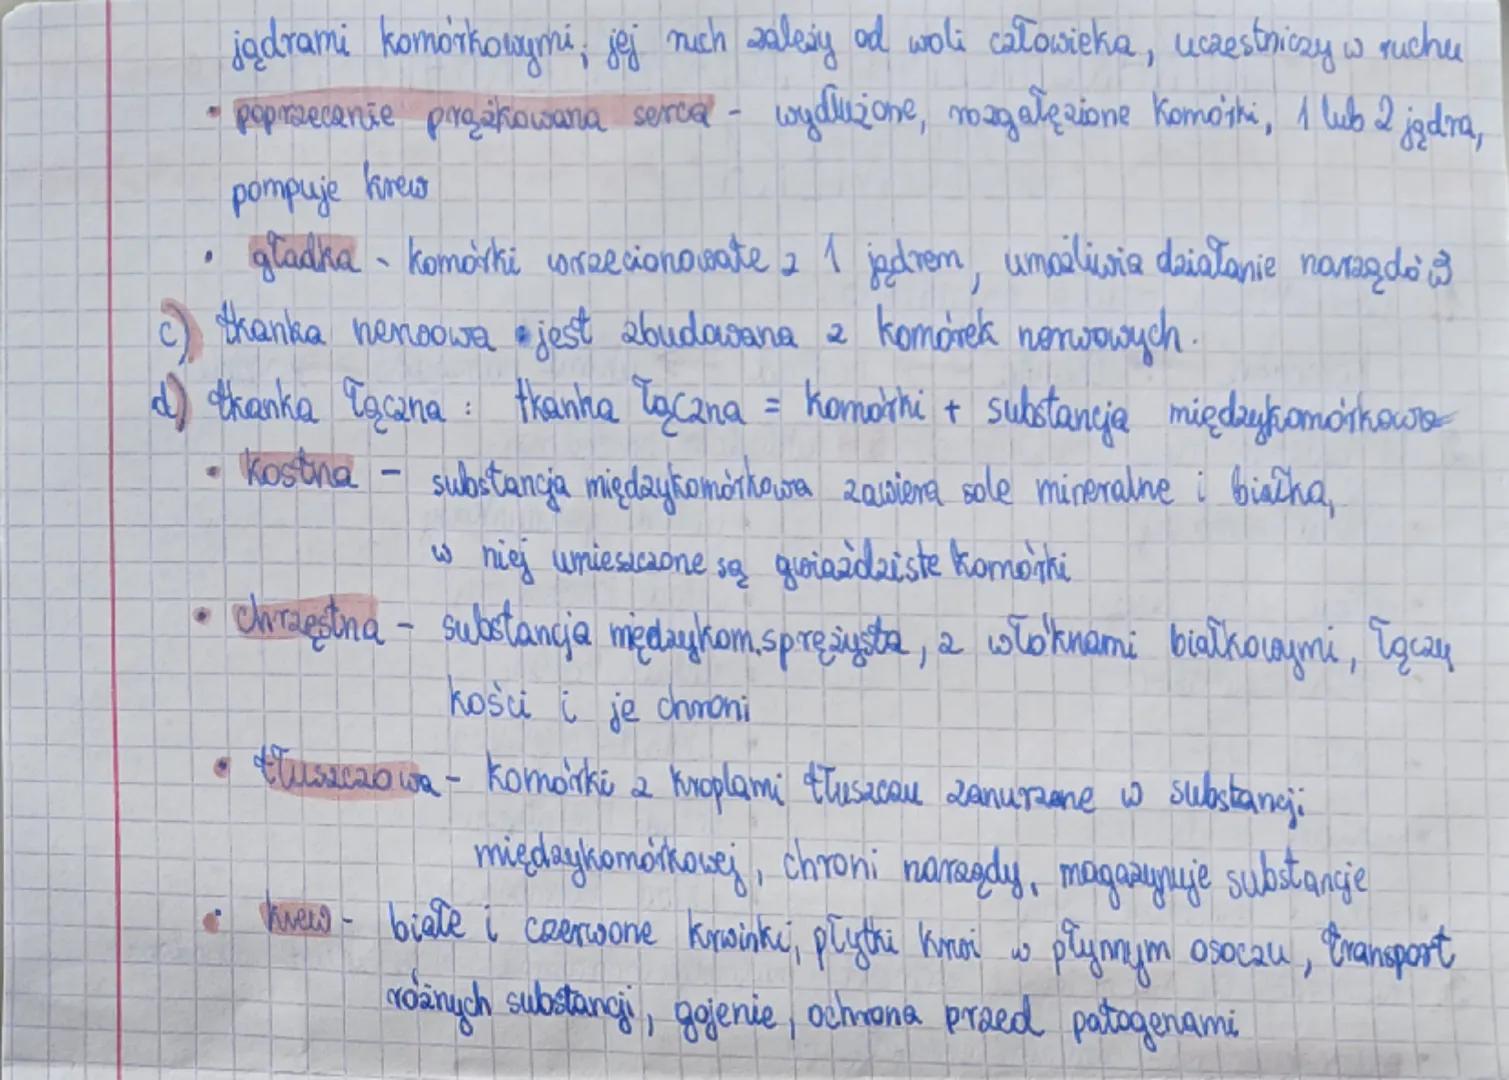 jądrami komórkowymi, jej ruch zależy od woli człowieka, uczestniczy w ruchu
• poprzecznie prążkowana serca - wydłużone, rozgałęzione komórki, 1 lub 2 jądra,
pompuje krew
• gładka - komórki wrzecionowate z 1 jądrem, umożliwia działanie narządów
c) tkanka nerwowa jest zbudowana z komórek nerwowych.
d) tkanka łączna: tkanka łączna = komórki + substancja międzykomórkowa
• kostna - substancja międzykomórkowa zawiera sole mineralne i białka,
w niej umieszczone są gwiaździste komórki
• chrzęstna - substancja międzykom. sprężysta, z włóknami białkowymi, łączy
kości i je chroni
• tłuszczowa - komórki z kroplami tłuszczu zanurzone w substancji
międzykomórkowej, chroni narządy, magazynuje substancje
• krew - białe i czerwone krwinki, płytki krwi w płynnym osoczu, transport
różnych substancji, gojenie, ochrona przed patogenami